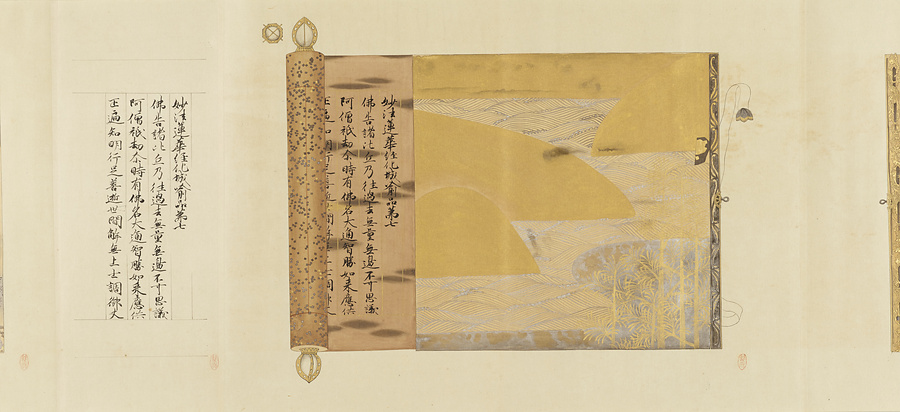 妙法蓮華経化城喩品第七
佛告諸比丘乃往過去無量無邊不可思議
阿僧祇劫尒時有佛名大通智勝如来應供
妙法蓮華経化城喩品第七
佛告諸比丘乃往過去無量無邊不可思議
阿僧祇劫尒時有佛名大通智勝如来應供
正遍知明行足善逝世間解無上士調御丈